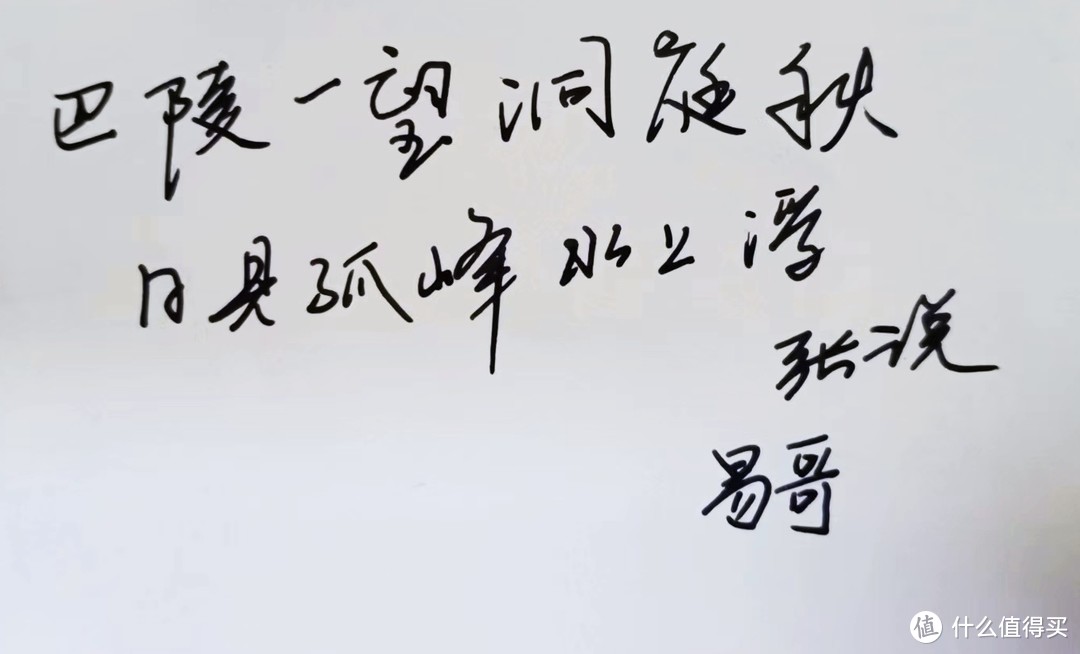 巴陵一望洞庭秋
日见孤峰水上浮
张说
易哥
值 什么值得买